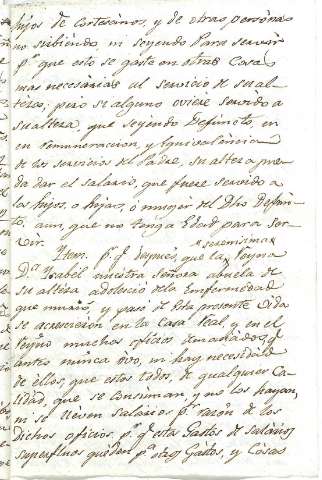 hijos de Cortesanos, y de otras personas
no sirbiendo, ni seyendo para servir
pª que esto se gaste en otras Cosas
mas necesarias al servicio de su al-
teza; pero si alguno oviere servido a
su alteza, que seyendo Defunto, en
en remuneracion, y equivalencia
de los servicios del Padre, su alteza pue-
da dar el salario, que fuere servido a
los hijos, o hijas, ó muger del Dho Defun-
to, aun, que no tenga Edad para ser-
vir.
Item. p.r q.e despues, que la serenissima Reyna
Dª Ysabél nuestra señora abuela de
su alteza adolesció de la Enfermedad
que murió, y pasó de esta presente vida
se acrescieron en la Casa Real, y en el
Reyno muchos oficios demasiados, q.e
antes nunca ovo, ni hay necesidad
de ellos, que estos todos, de qualquier Ca-
lidad, que se Consuman, y no los hayan,
ni se lleven salarios p.r razon de los
Dichos oficios, p.r q.e estos Gastos de salarios
superfluos queden pª otros Gastos, y Cosas